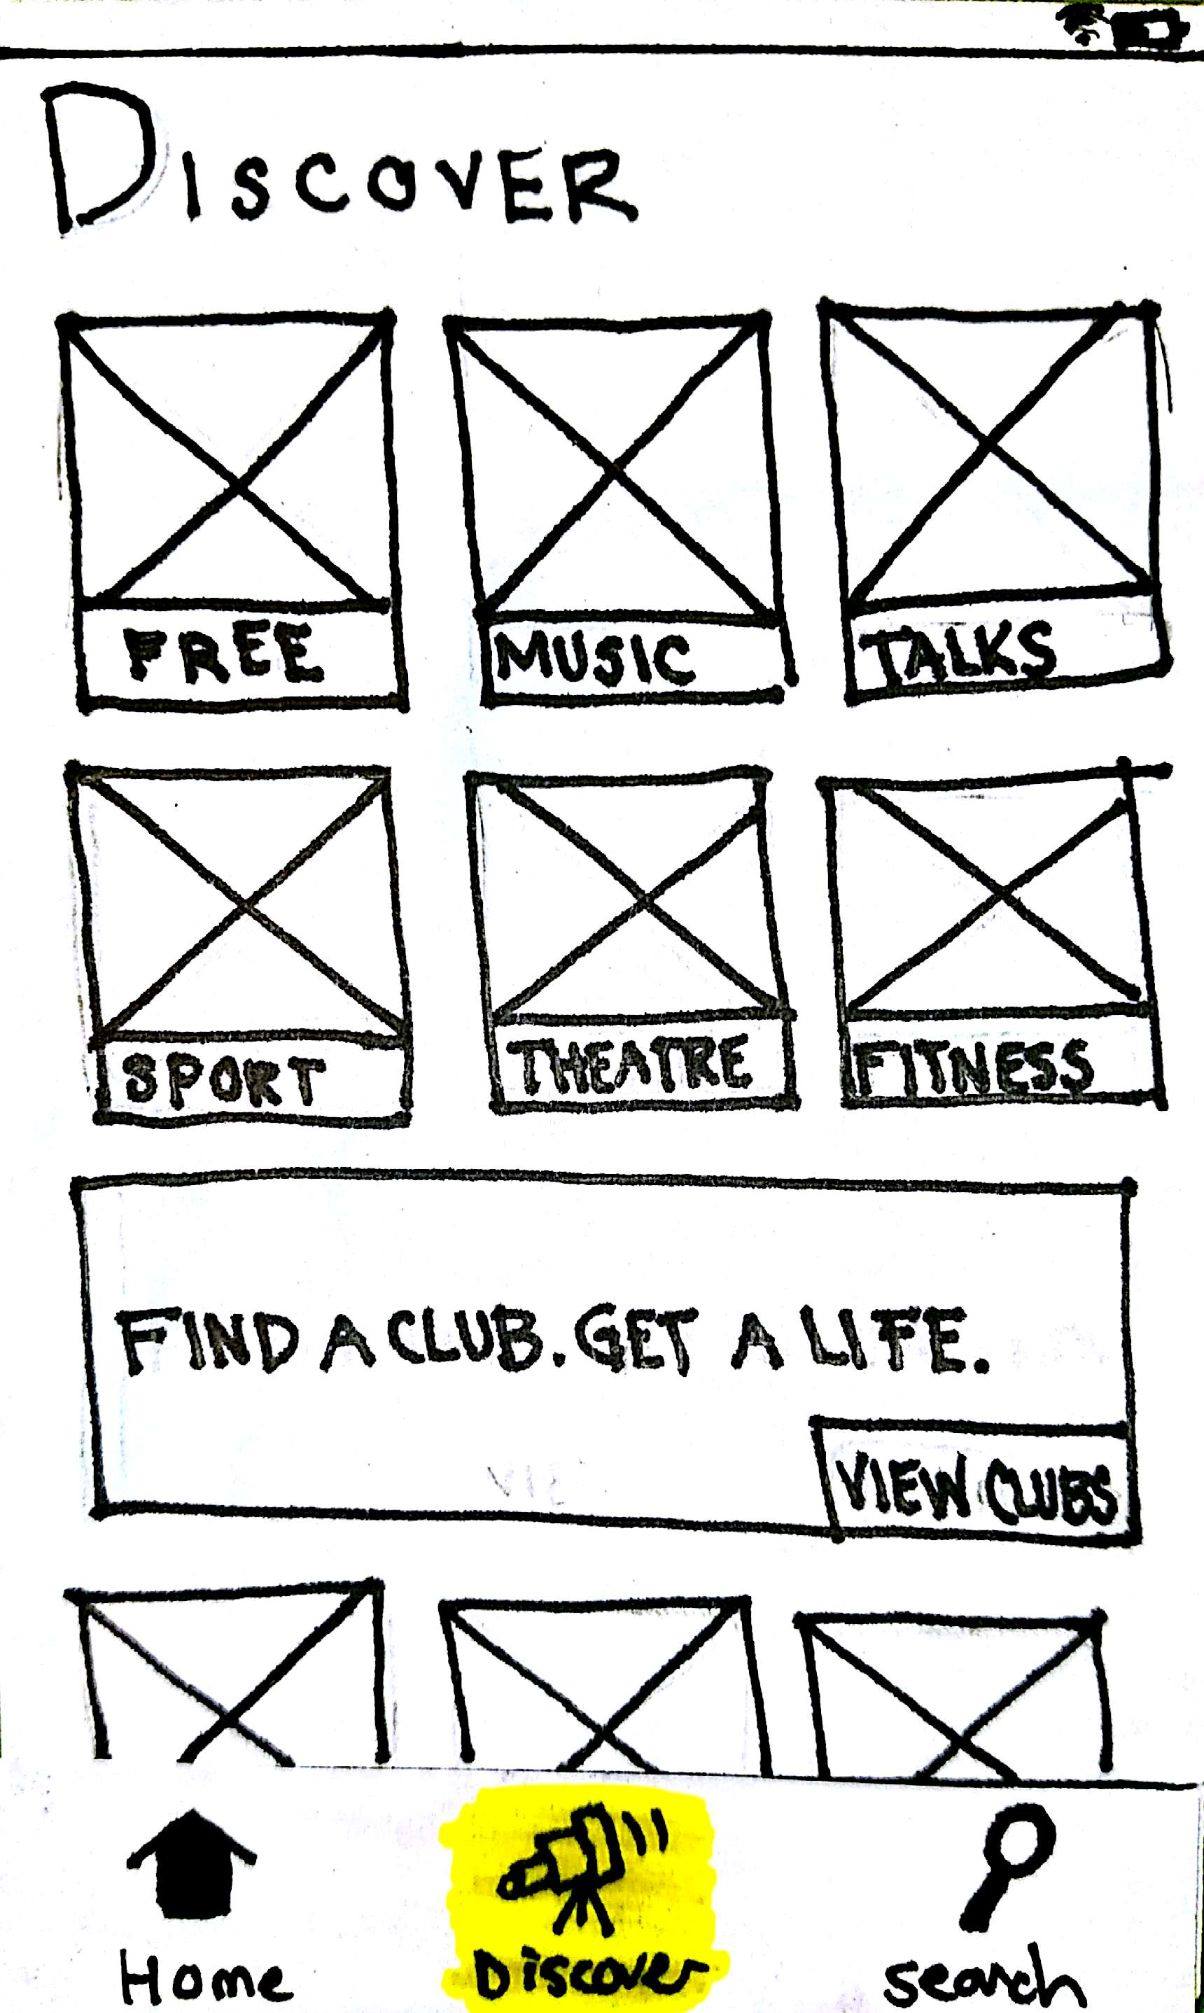 DISCOVER
FREE MUSIC TALKS
SPORT THEATRE FITNESS
FIND A CLUB. GET A LIFE.
VIE
VIEW CLUBS
Home Discover search